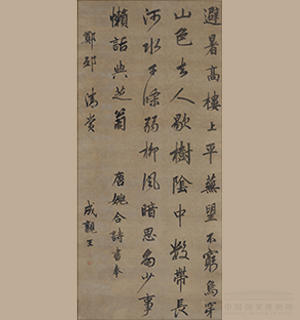 避暑高樓上平蕪望不窮鳥穿
山色去人歇樹陰中數帶長
河水千條弱柳風暗思多少事
懶話與芝翁 唐姚合詩書奉
鄭邸清賞
成親王